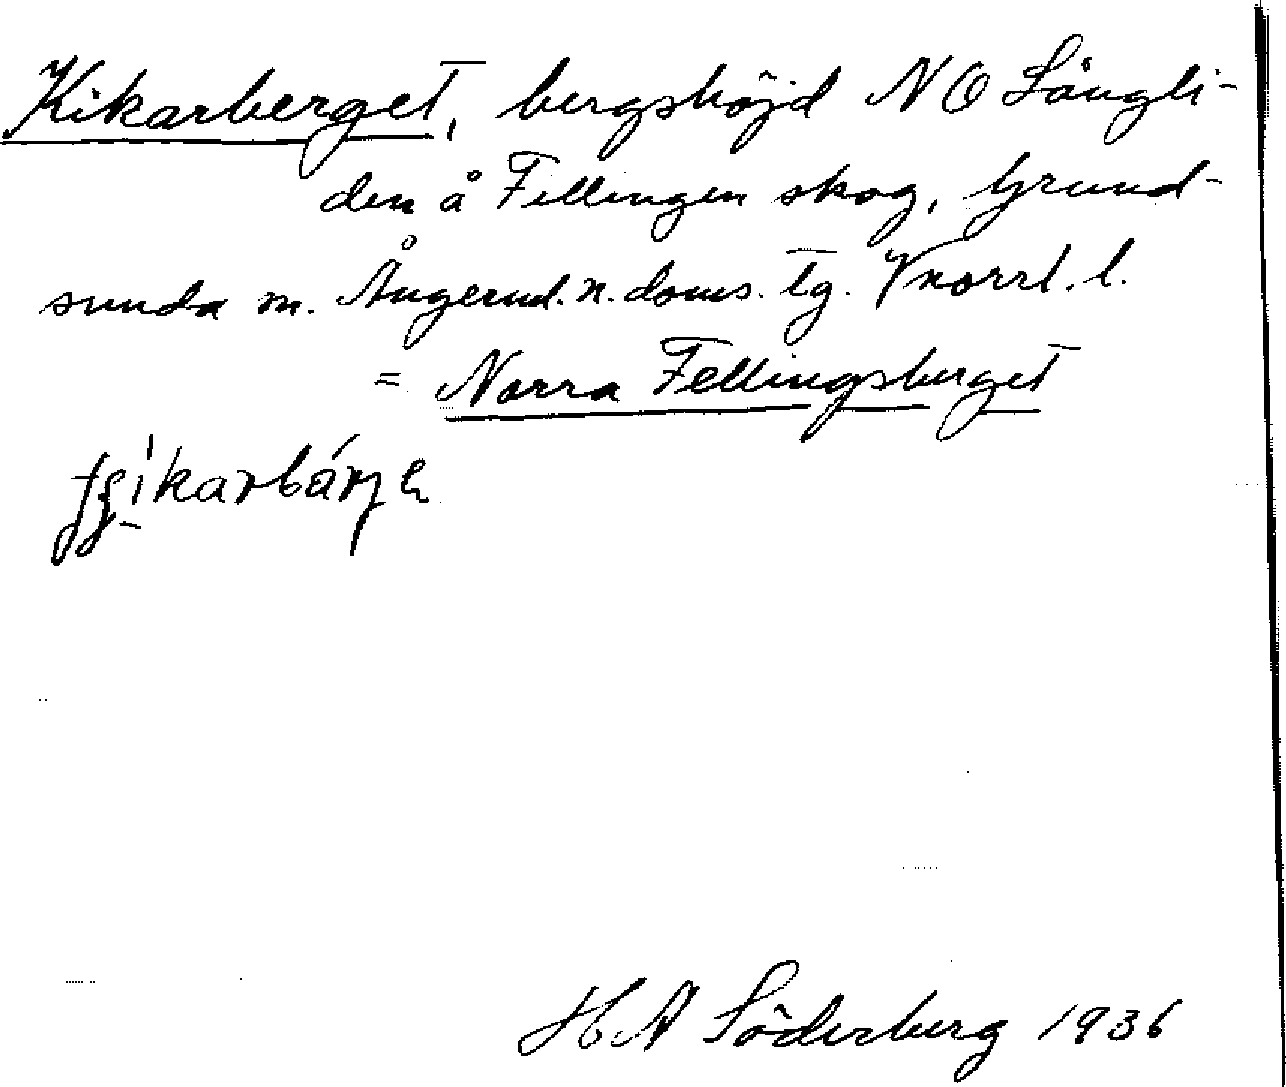 Kikarberget, bergshöjd NO Långli-
den å Fellingen skog, Grund-
sunda sn. Ångerml. n. doms. tg. Vnorrl. l.
= Norra Fellingsberget
H A Söderberg 1936